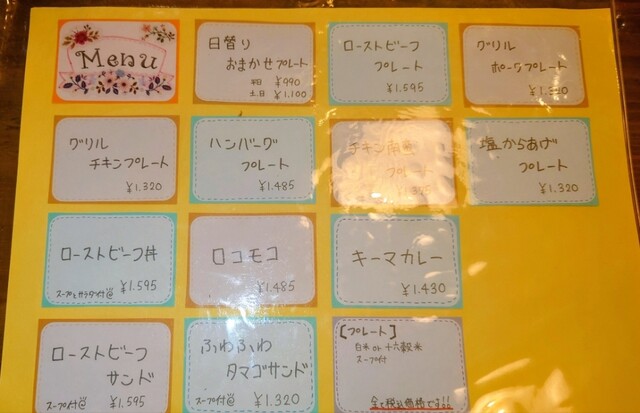 Menu
日替り
おまかせプレート
平日 ¥990
土日 ¥1,100
ローストビーフ
プレート
¥1.595
グリル
ポークプレート
グリル
チキンプレート
¥1.320
ハンバーグ
プレート
¥1.485
チキン南蛮
プレート
塩からあげ
プレート
¥1.320
ローストビーフ丼
スープとサラダ付 ¥1.595
ロコモコ
¥1.485
キーマカレー
¥1.430
ローストビーフ
サンド
スープ付 ¥1.595
ふわふわ
タマゴサンド
スープ付 ¥1.100
【プレート】
白米 or 十六穀米
スープ付
全て税込価格です!!